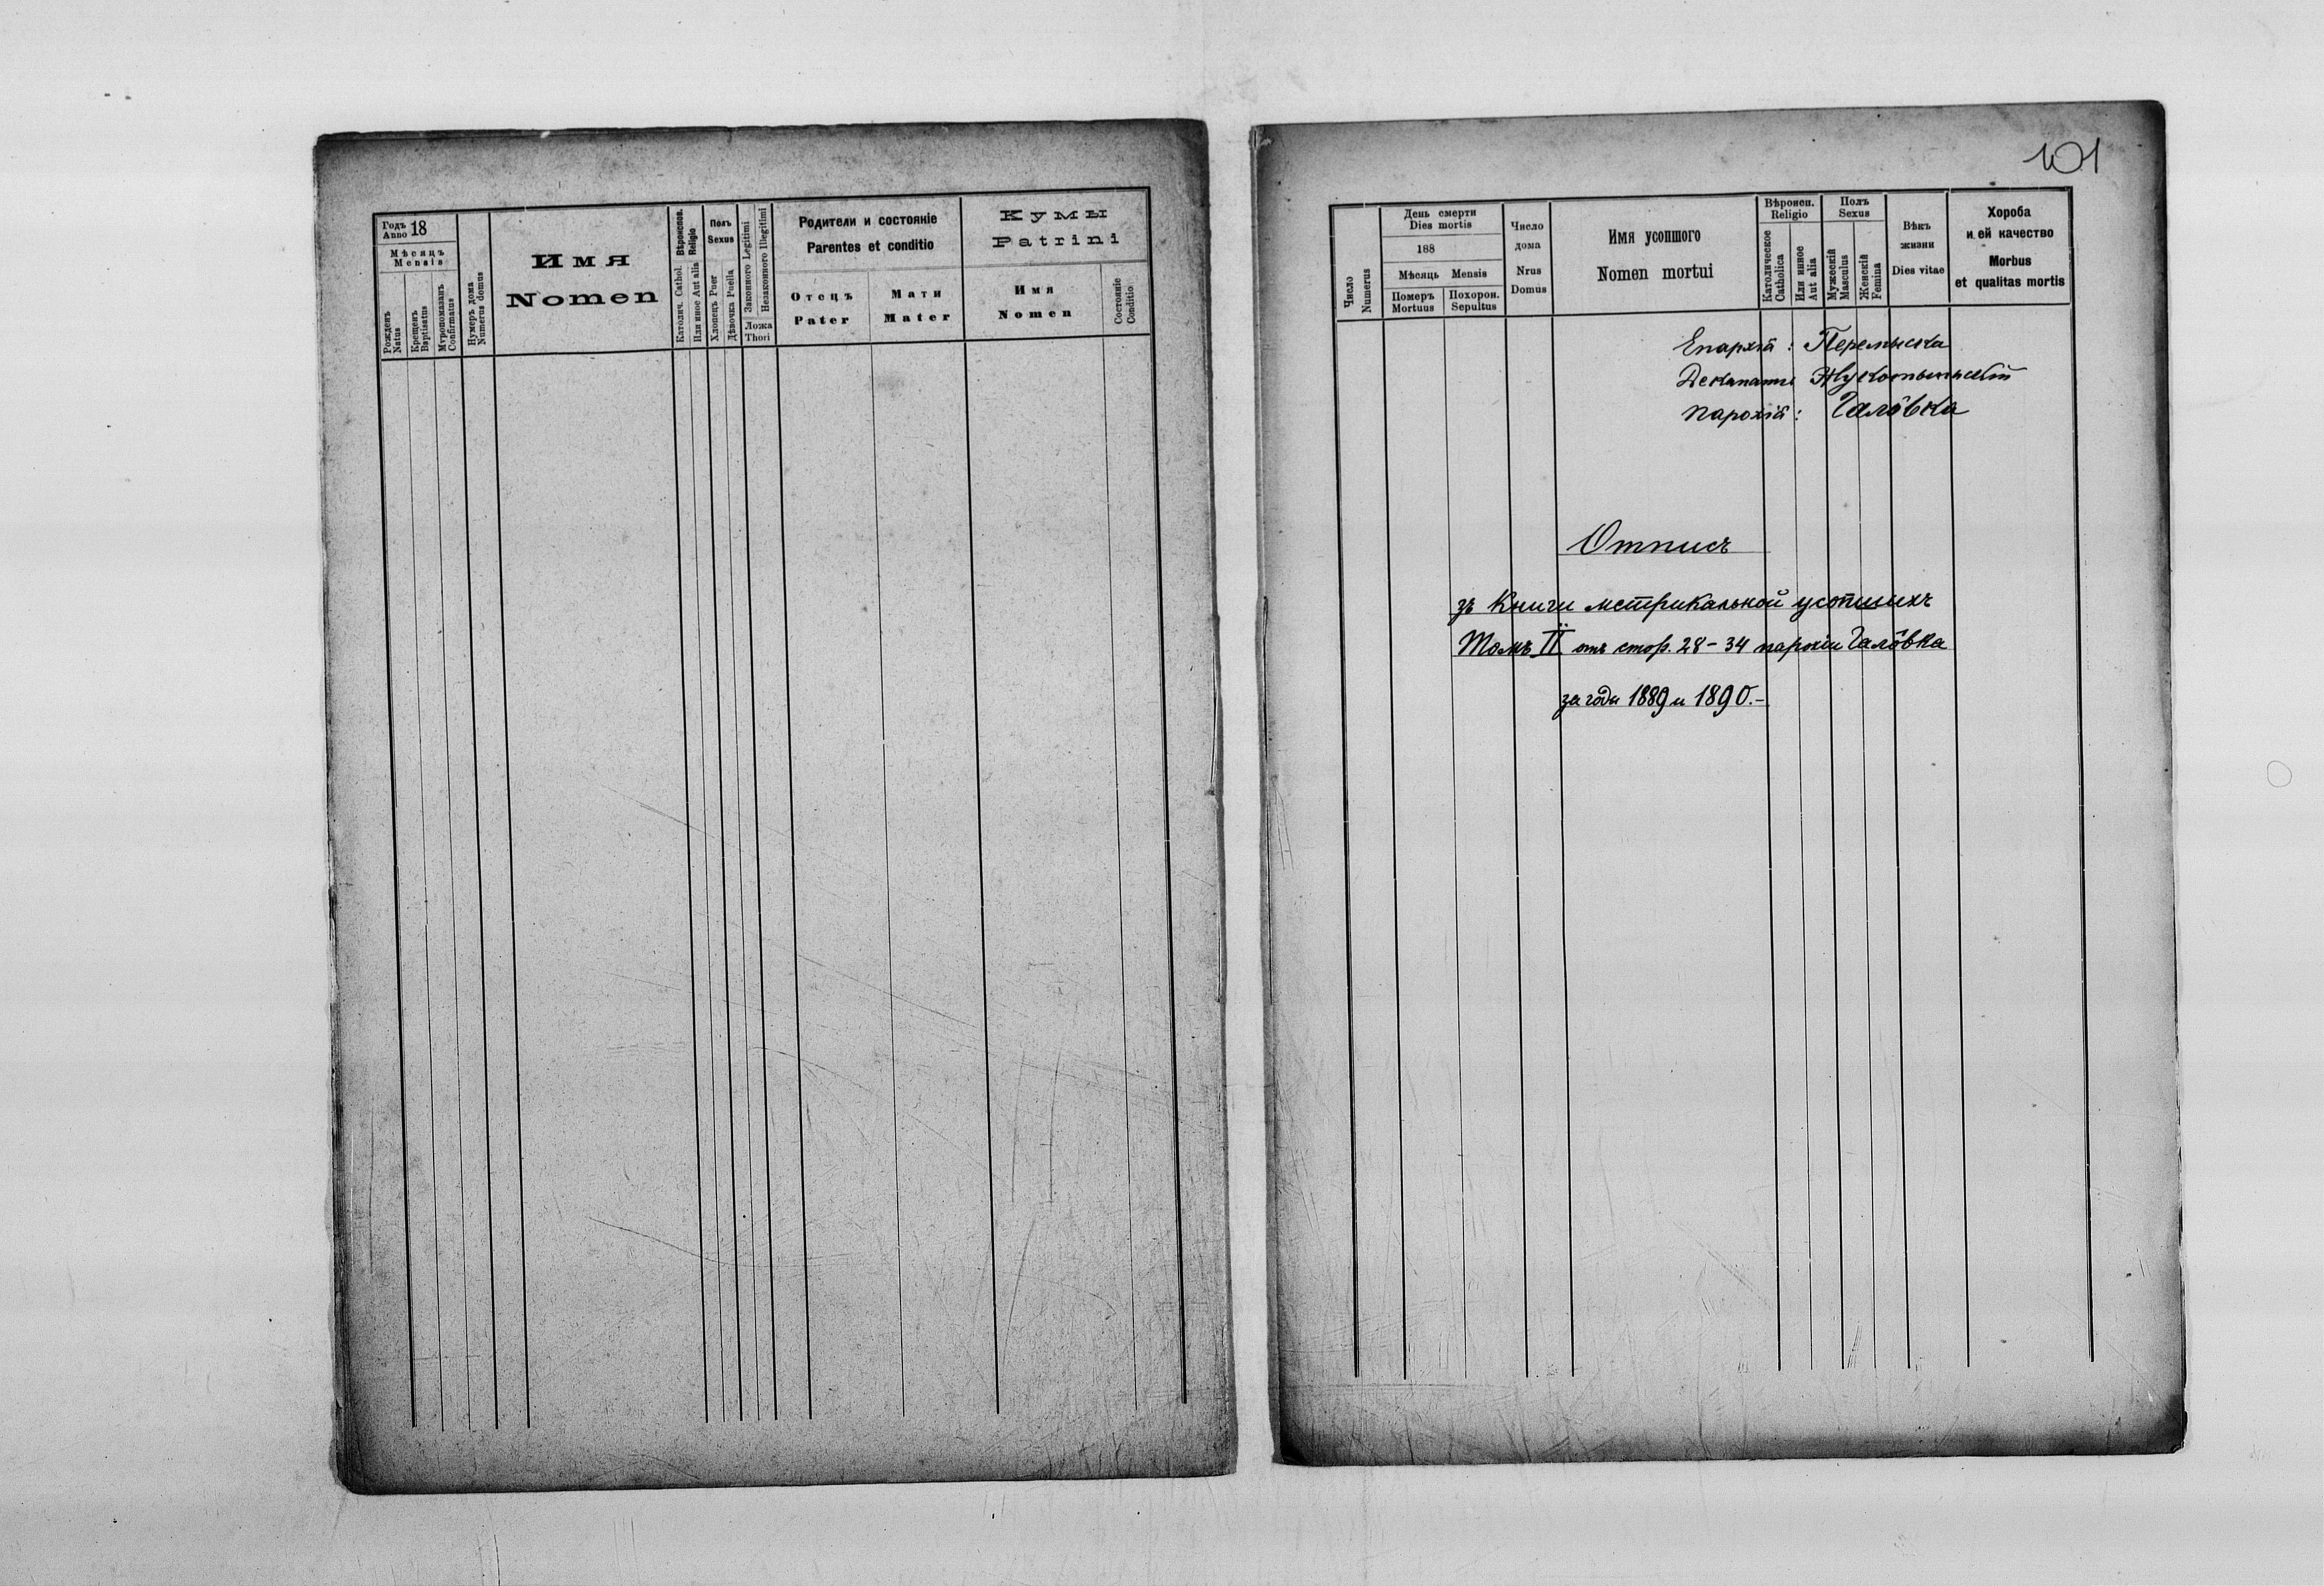 Годъ Anno 18
Мѣсяцъ
Mensis
Рожденъ Natus
Крещенъ Baptisatus
Мѵропомазанъ Confirmatus
Нумеръ дома Numerus domus
Имя
Nomen
Вѣроисповѣд. Religio
Католич. Cathol.
Или иное Aut alia
Полъ
Sexus
Хлопецъ Puer
Дѣвочка Puella
Законного Legitimi
Незаконного Illegitimi
Ложа
Thori
Родители и состояніе
Parentes et conditio
Отецъ
Pater
Мати
Mater
Кумы
Patrini
Имя
Nomen
Состояніе Conditio
101
Число Numerus
День смерти
Dies mortis
188
Мѣсяць Mensis
Померъ Mortuus
Похорон. Sepultus
Число
дома
Nrus
Domus
Имя усопшого
Nomen mortui
Вѣроисп.
Religio
Католическое Catholica
Или иное Aut alia
Полъ
Sexus
Мужескій Masculus
Женскій Femina
Вѣкъ
жизни
Dies vitae
Хороба
и ей качество
Morbus
et qualitas mortis
Епархія: Перемыска
Деканатъ Жукотыньскій
Парохія: Галôвка
Отписъ
зъ Книги метрикальной усопшихъ
Томъ II отъ стор. 28-34 парохіи Галôвка
за года 1889 и 1890.-